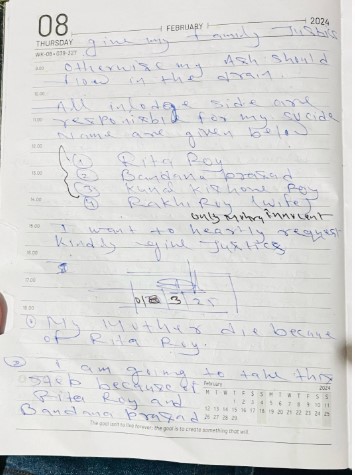 08
FEBRUARY
2024
THURSDAY
WK-06 • 039-327
give my Family Justis
otherwise my Ash should
flow in the drain.
All inlodge side are
responsible for my sucide
Name are given below
① Rita Roy
② Bandana prasad
③ Kund Kishore Roy
④ Rakhi Roy (wife)
only innocent
I want to hearly request
Kindly give Justics
3 25
① My Mother die because
of Rita Roy.
② I am going to take this
step because of
Rita Roy and
Bandana prasad
February 2024
M T W T F S S
1 2 3 4
5 6 7 8 9 10 11
12 13 14 15 16 17 18
19 20 21 22 23 24 25
26 27 28 29
The goal isn't to live forever, the goal is to create something that will